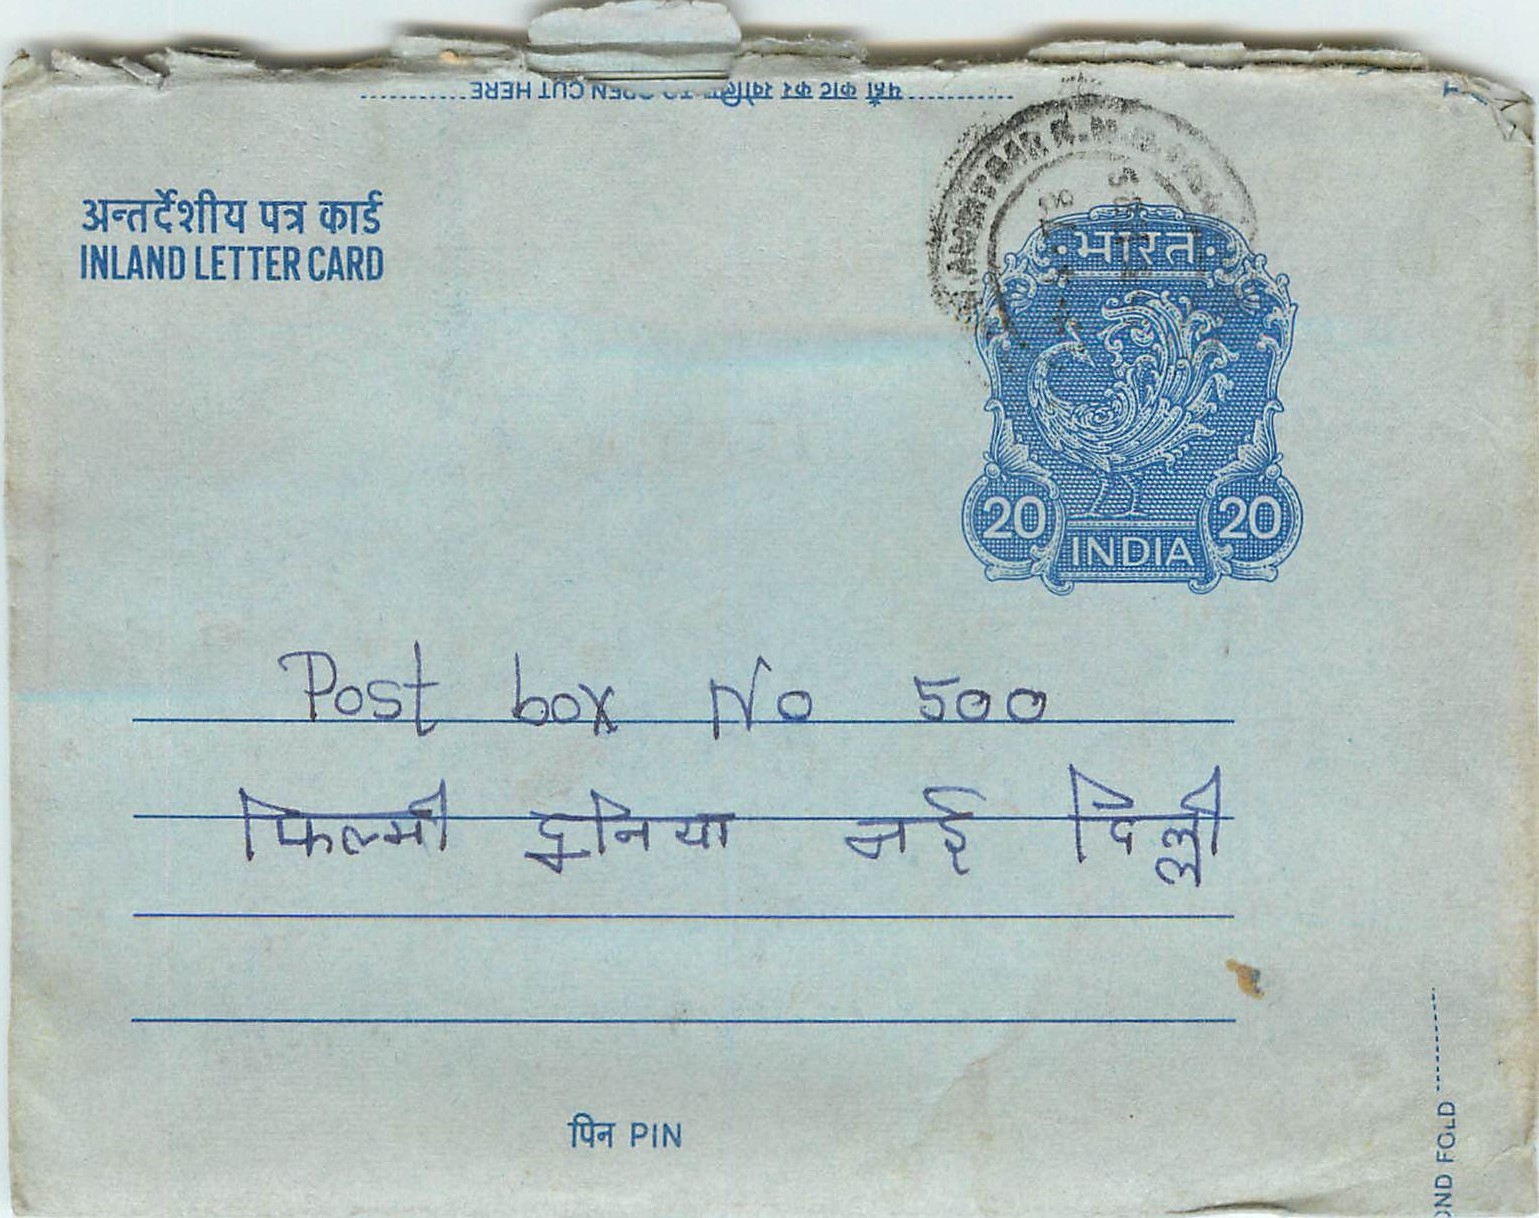 यहाँ काट कर खोलिए TO OPEN CUT HERE
अन्तर्देशीय पत्र कार्ड
INLAND LETTER CARD
भारत
20 20
INDIA
Post box No 500
फिल्मी दुनिया नई दिल्ली
पिन PIN
FOLD